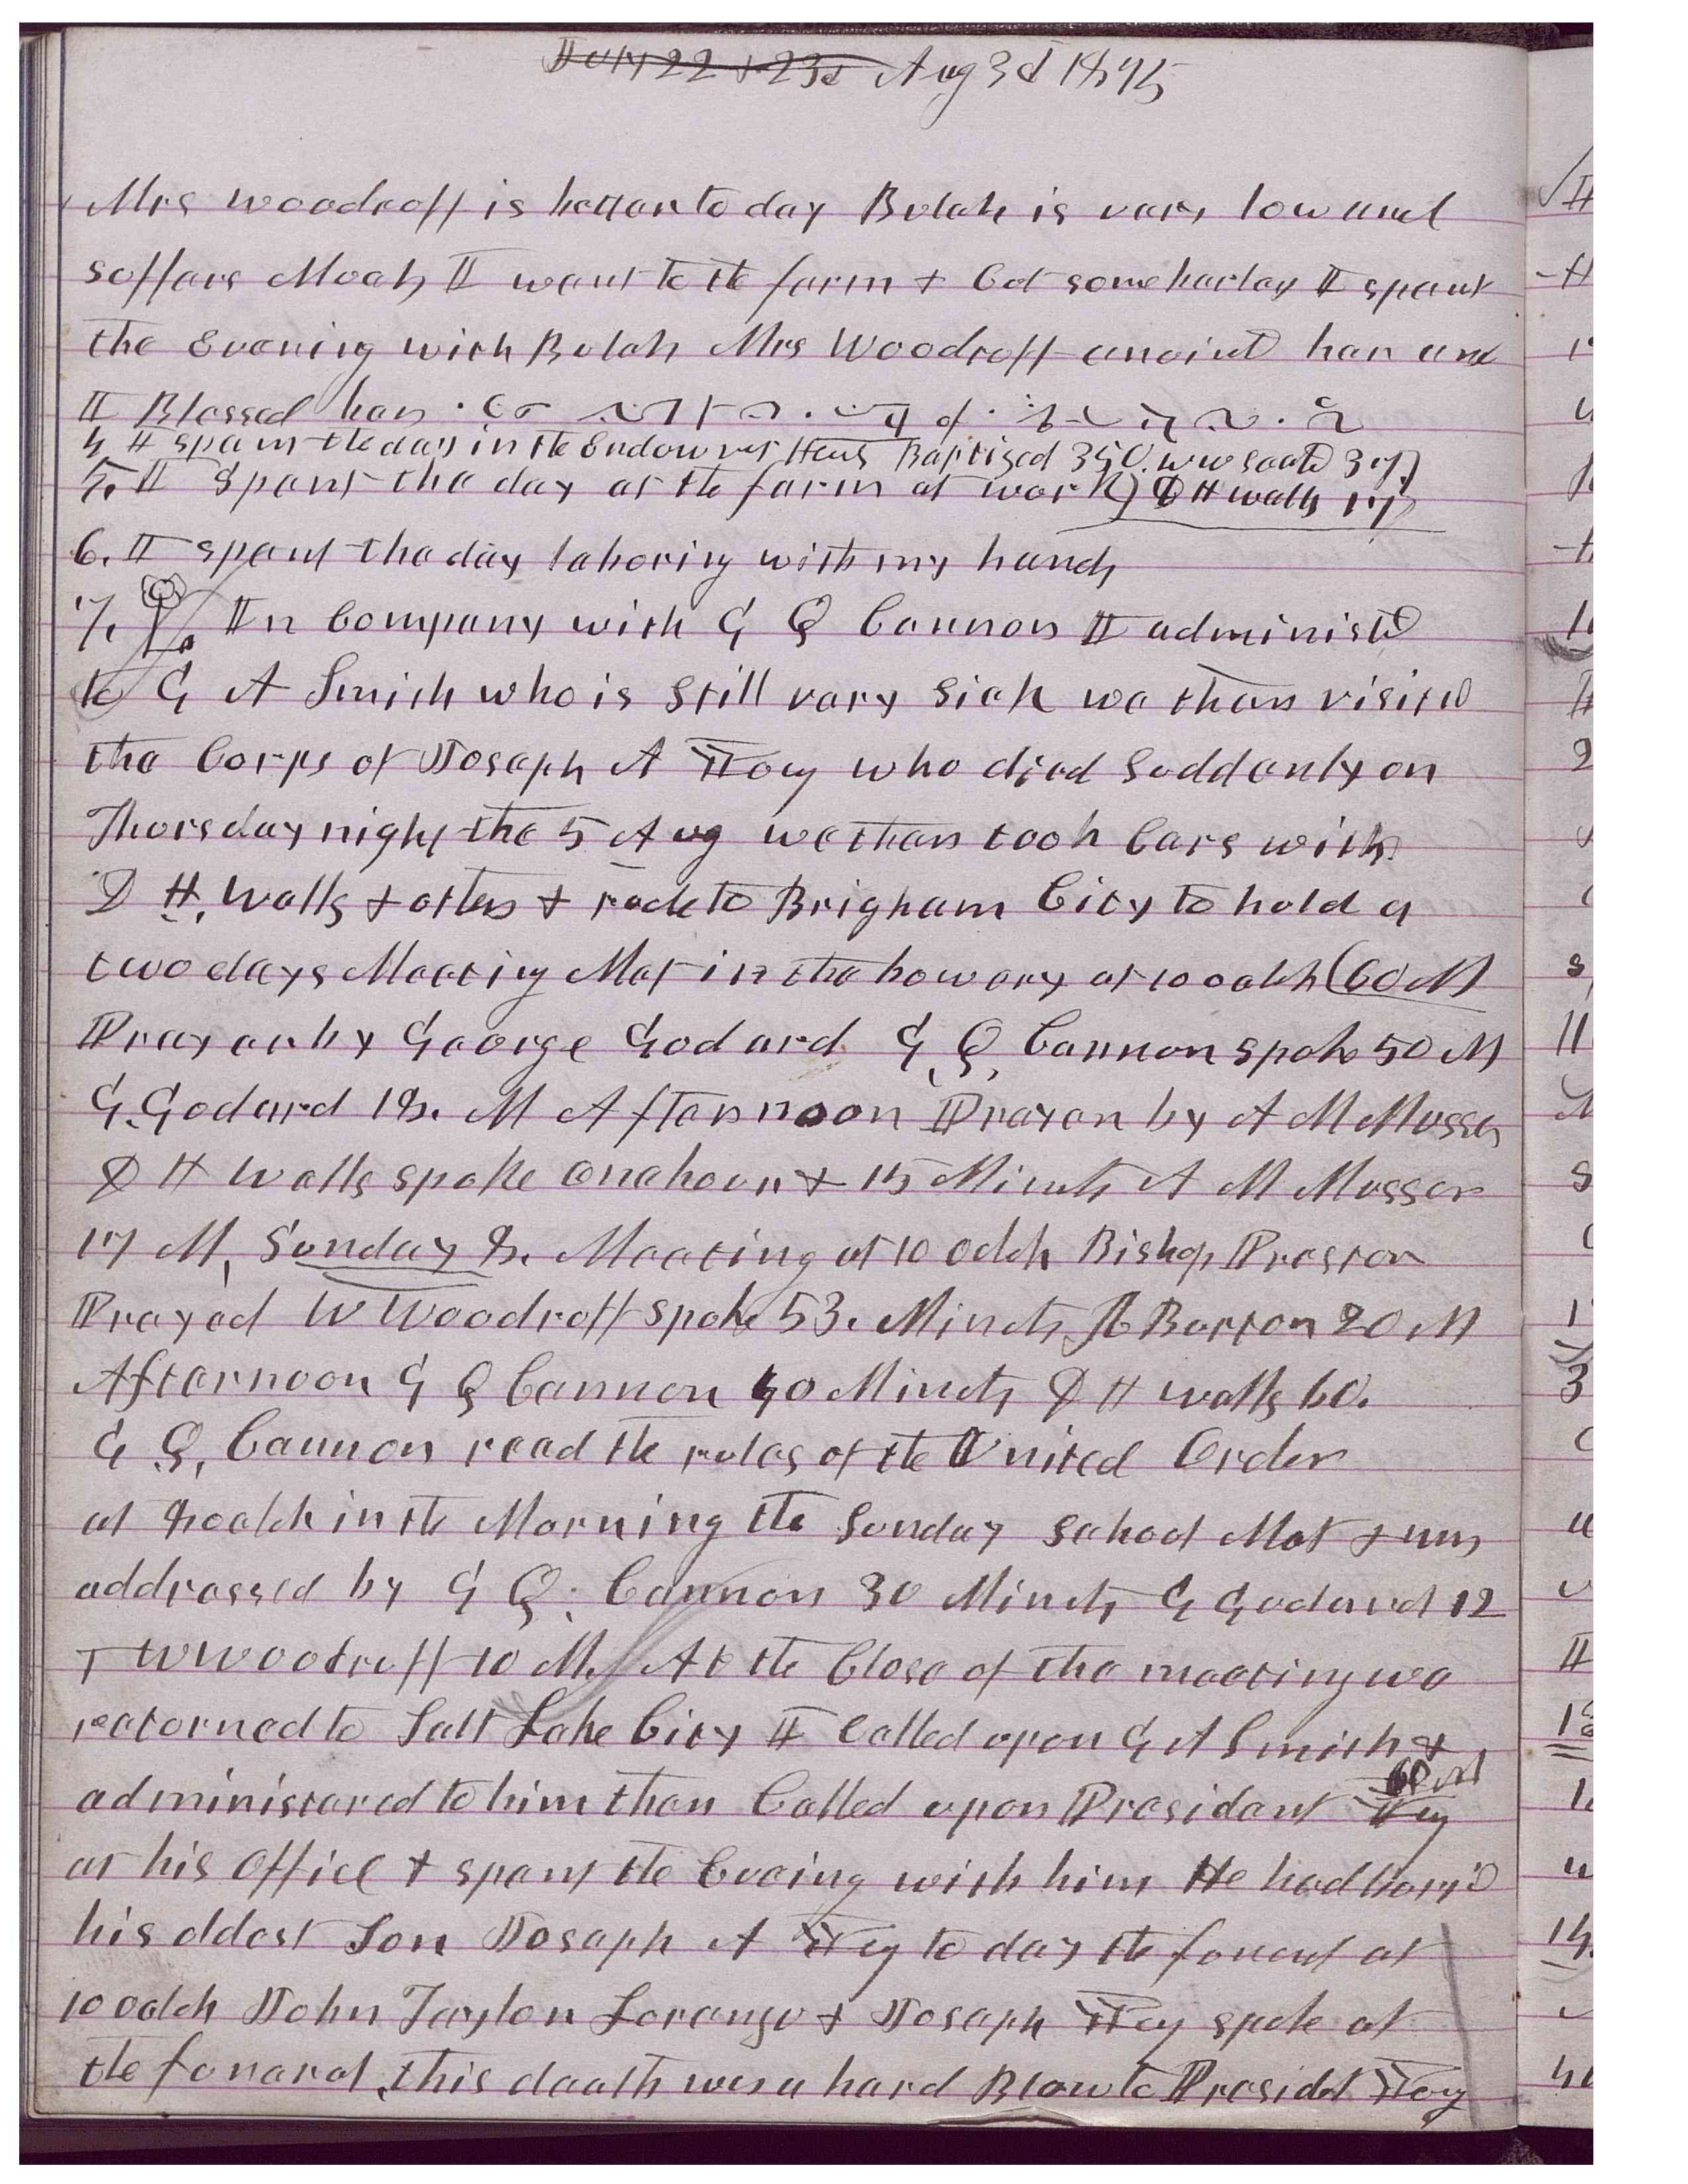 July 22 & 23d Aug 3d 1875
Mrs Woodruff is better to day Bulah is very low and
suffers Much I went to the farm & Got some barley I spent
the Evening with Bulah Mrs Woodruff anointd her and
I Blessed her
4 I spent the day in the Endowmet House Baptized 350. W W seald 37
5. I Spent the day at the farm at work) D H Wells 17
6. I spent the day laboring with my hands
7. In Company with G Q Cannon I administd
to G A Smith who is still very sick we then visited
the Corps of Joseph A Young who died suddenly on
Thursday night the 5 Aug we then took Cars with
D H. Wells & others & rode to Brigham City to hold a
two days Meeting Met in the bowery at 10 oclok (60 M)
Prayer by George Godard G. Q. Cannon spoke 50 M
G. Godard 18. M Afternoon Prayer by A M Musser
D H Wells spoke one hour & 15 Minuts A M Musser
17 M, Sunday 8. Meeting at 10 oclok Bishop Preston
Prayed W Woodruff spoke 53. Minuts Burton 20 M
Afternoon G Q Cannon 40 Minuts D H Wells 60.
G. Q. Cannon read the rules of the United Order
at oclok in the Morning the Sunday school Met & was
addressed by G Q. Cannon 30 Minuts G Godard 12
W Woodruff 10 M. At the Close of the meeting we
returned to Salt Lake City I Called upon G A Smith &
administered to him then Called upon President Yg
60 M
at his office & spent the Evening with him He had buried
his oldest Son Joseph A Yg to day the funeral at
10 oclok John Taylor Lorenzo & Joseph Yg spoke at
the funeral, this death was a hard Blow to Presidet Young